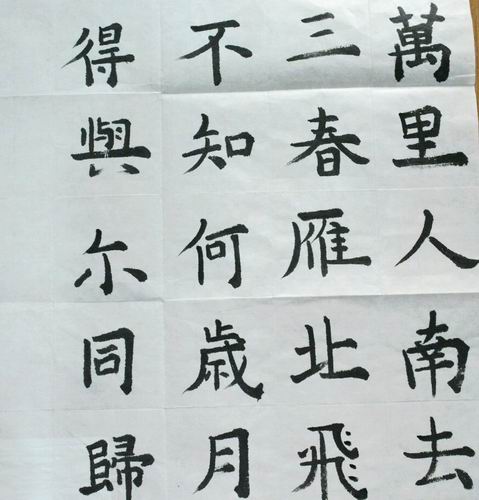 萬里人南去
三春雁北飛
不知何歳月
得與尓同歸